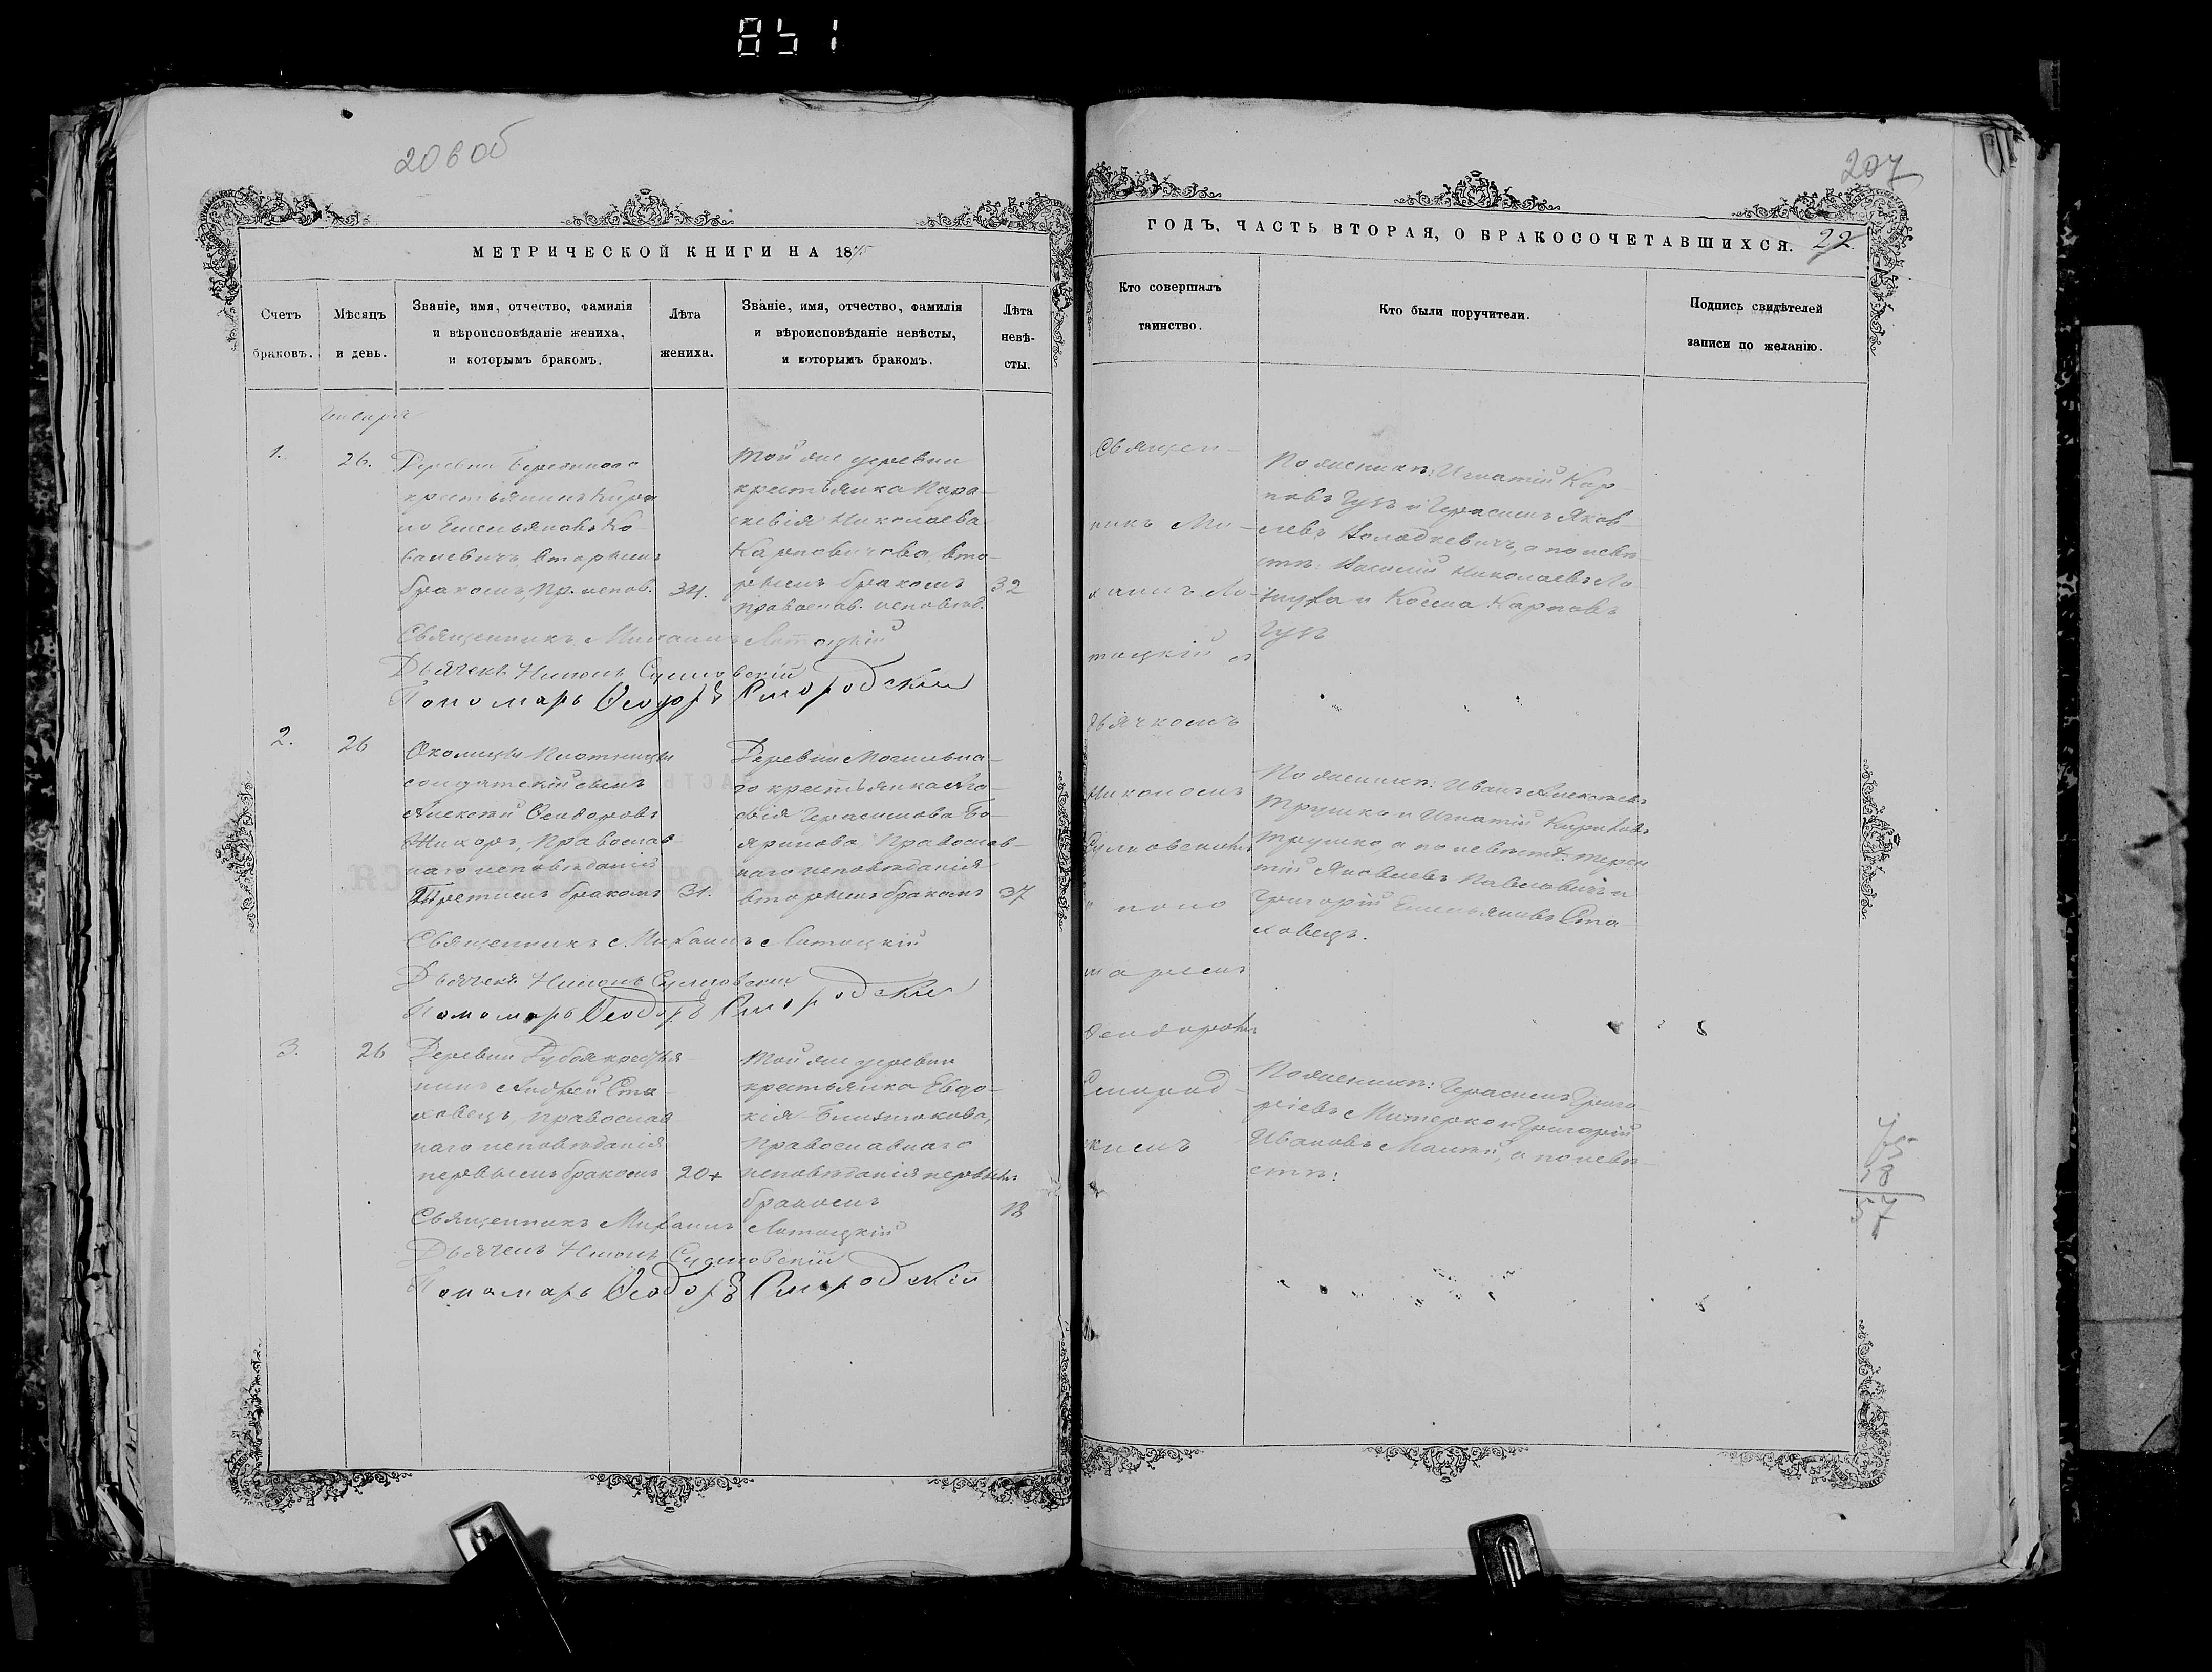 851
206 об
207
МЕТРИЧЕСКОЙ КНИГИ НА 1875
Счетъ браковъ.
Мѣсяцъ и день.
Званіе, имя, отчество, фамилія и вѣроисповѣданіе жениха, и которымъ бракомъ.
Лѣта жениха.
Званіе, имя, отчество, фамилія и вѣроисповѣданіе невѣсты, и которымъ бракомъ.
Лѣта невѣ- сты.
Января
1.
26.
Деревни
крестьянинъ
по Емельяновъ Ко-
валевичъ вторымъ
бракомъ, Пр. испов.
34.
Той же деревни
крестьянка Пара-
скевія Николаева
Карповичова, вто-
рымъ бракомъ
православ. исповѣд.
32
Священникъ Михаилъ Лотоцкій
Дьячекъ Никонъ
Пономарь Ѳеодоръ Смородскій
2.
26
Околицы Плотницы
солдатскій сынъ
Алексѣй Ѳеодоровъ
Православ-
наго исповѣданія
Третьимъ бракомъ
31.
Деревни Могильна-
го крестьянка Ага-
фія Герасимова Бо-
яринова Православ-
наго исповѣданія
вторымъ бракомъ
37
Священникъ Михаилъ Лотоцкій
Дьячекъ Никонъ
Пономарь Ѳеодоръ Смородскій
3.
26
Деревни Дубоя крестья
нинъ Андрей Ста-
ховецъ, православ
наго исповѣданія
первымъ бракомъ
20+
Той же деревни
крестьянка Евдо-
кія
Православнаго
исповѣданія первымъ
бракомъ
18
Священникъ Михаилъ Лотоцкій
Дьячекъ Никонъ
Пономарь Ѳеодоръ Смородскій
ГОДЪ, ЧАСТЬ ВТОРАЯ, О БРАКОСОЧЕТАВШИХСЯ.
22.
Кто совершалъ таинство.
Кто были поручители.
Подпись свидѣтелей записи по желанію.
Священ-
никъ Ми-
хаилъ Ло-
тоцкій съ
дьячкомъ
Никономъ
и поно
маремъ
Ѳеодоромъ
Смород-
скимъ
По женихѣ: Игнатій Кар-
повъ Гузъ и Герасимъ Яков-
левъ Колодкевичъ, а по невѣ-
стѣ: Василій Николаевъ
и Косма Карповъ
Гузъ
По женихѣ: Иванъ Алексѣевъ
Трушко и Игнатій
Трушко, а по невѣстѣ: Терен
тій Яковлевъ Павловичъ и
Григорій Емельяновъ Ста-
ховецъ.
По женихѣ: Герасимъ Григо-
ріевъ Митерко и Григорій
Ивановъ а по невѣ-
стѣ:
75
18
57